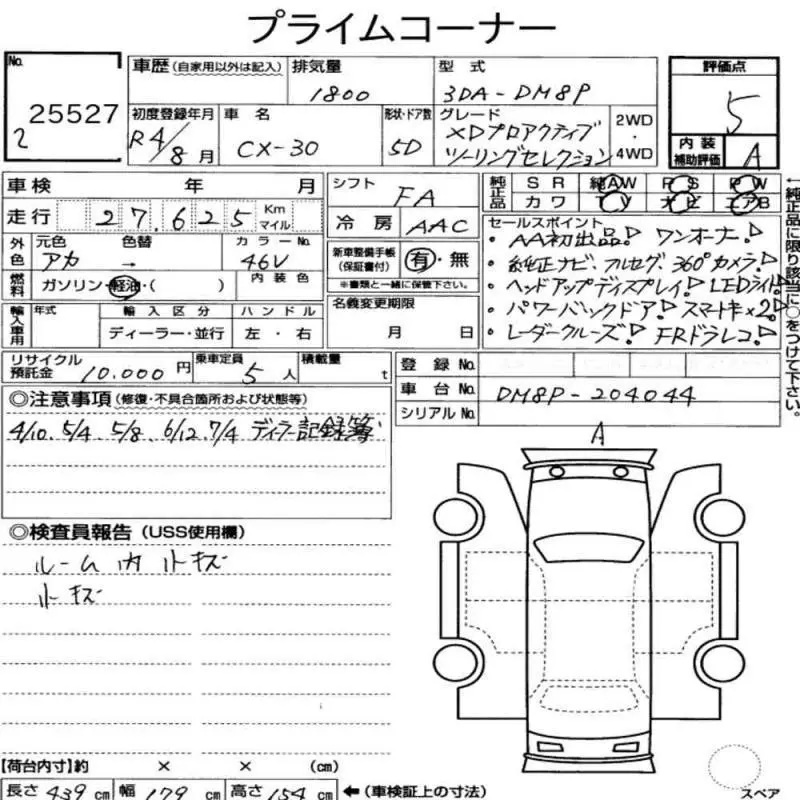 プライムコーナー
No.
25527
2
車歴 (自家用以外は記入)
排気量
1800
型式
3DA-DM8P
評価点
5
初度登録年月
R4/8月
車名
CX-30
形状・ドア数
5D
グレード
XDプロアクティブ
ツーリングセレクション
2WD
・
4WD
内装
補助評価
A
車検 年 月
シフト
FA
純正品
SR 純AW PS PW
カワ TV ナビ エアB
走行 27,625 Km
マイル
冷房
AAC
セールスポイント
・AA初出品! ワンオーナー!
・純正ナビ、フルセグ、360°カメラ!
・ヘッドアップディスプレイ! LEDライト!
・パワーバックドア! スマートキー×2!
・レーダークルーズ! FRドラレコ!
外色
元色
アカ
色替
→
カラーNo.
46V
新車整備手帳
(保証書付)
有・無
※書類と一緒に保管下さい。
燃料
ガソリン・軽油・( )
内装色
名義変更期限
月 日
輸入車用
年式
輸入区分
ディーラー・並行
ハンドル
左・右
←純正品に限り該当に○をつけて下さい。
リサイクル
預託金
10,000円
乗車定員
5人
積載量
t
登録No.
車台No.
DM8P-204044
シリアルNo.
◎注意事項 (修復・不具合箇所および状態等)
4/10、5/4、5/8、6/12、7/4 ディーラー記録簿
◎検査員報告 (USS使用欄)
ルーム内小キズ
小キズ
A
【荷台内寸】約 × × (cm)
長さ 439 cm 幅 179 cm 高さ 154 cm ←(車検証上の寸法)
スペア